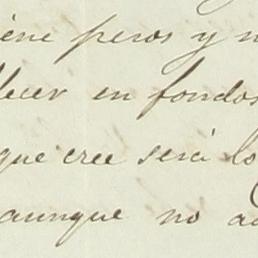 iene peros y n
llecer en fondos
que cree será lo
aunque no a